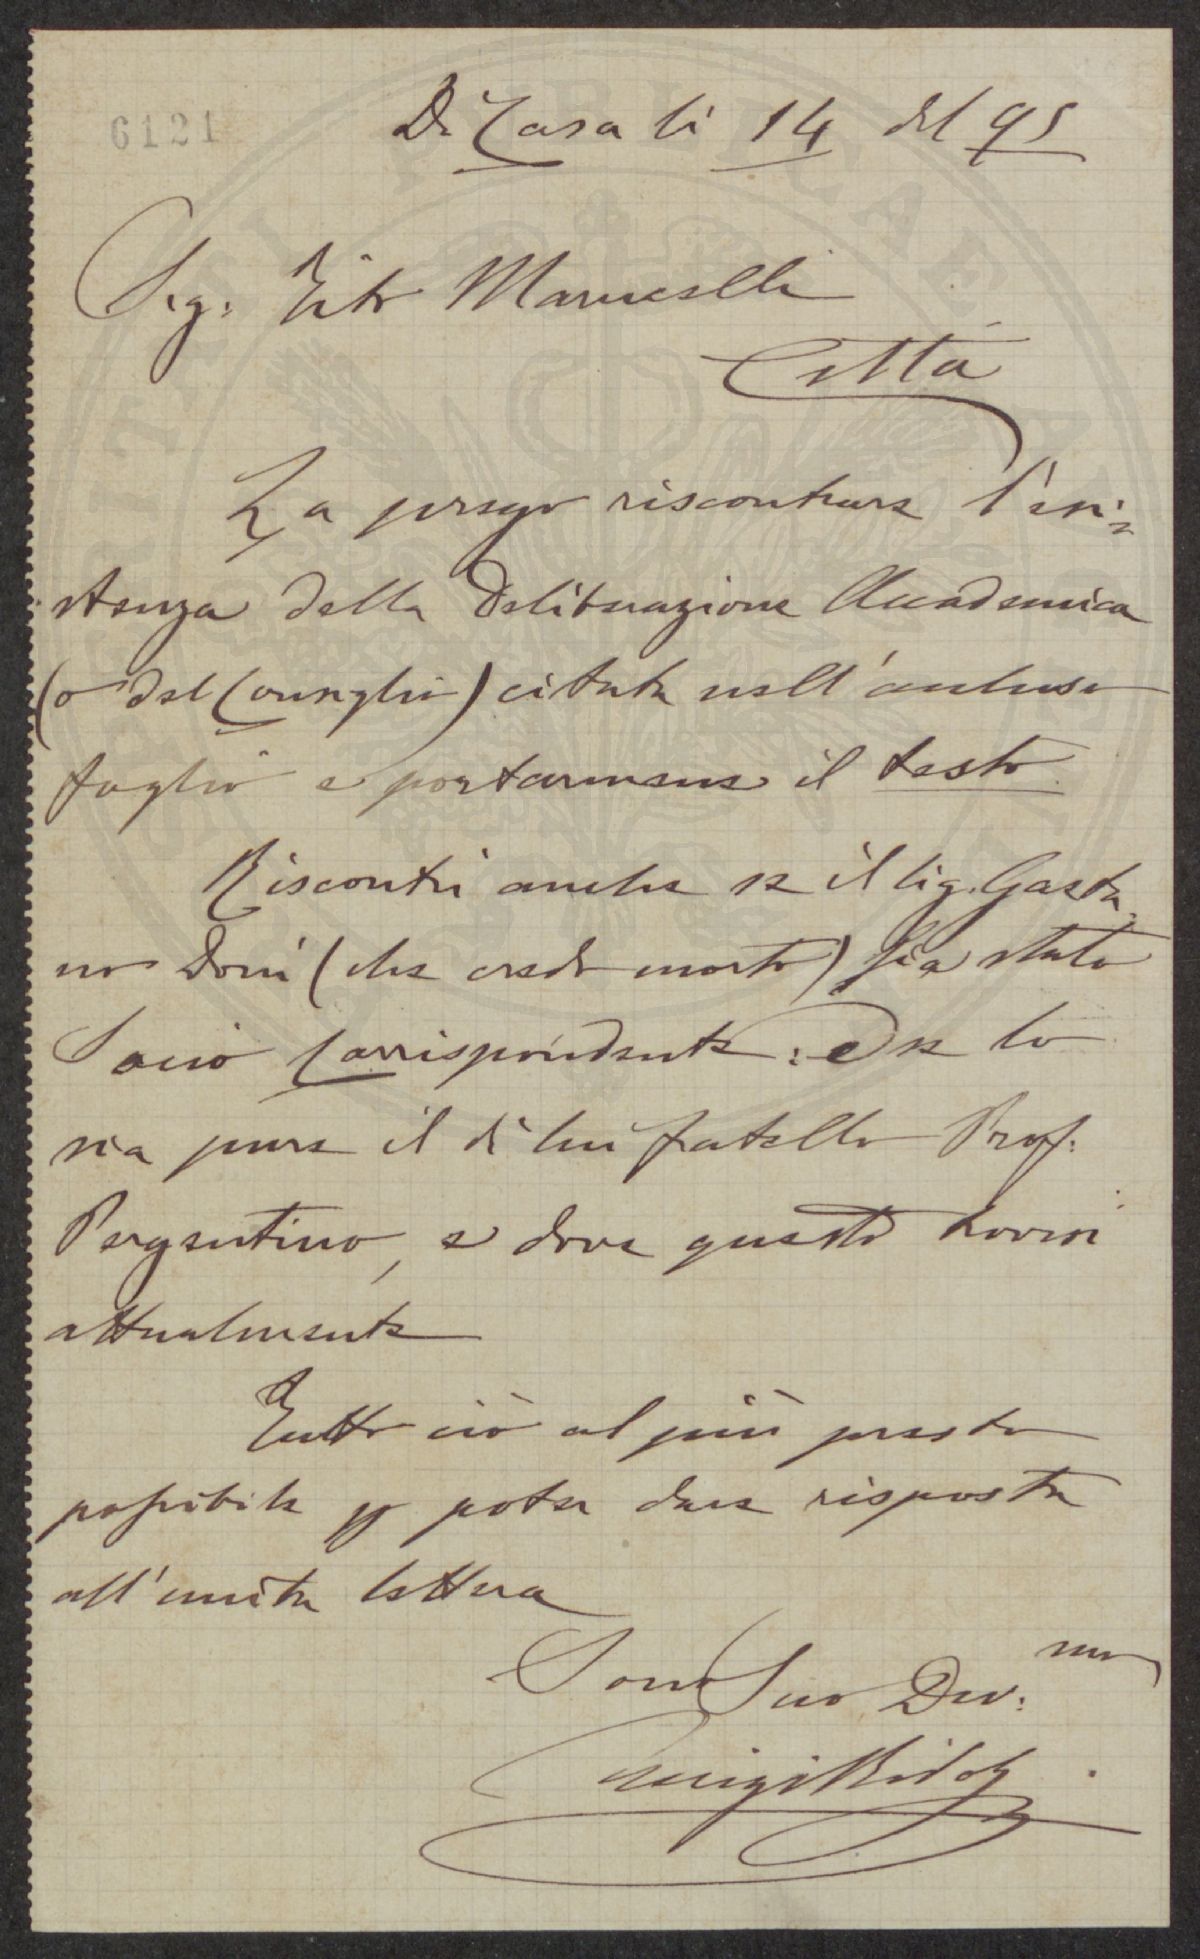 6121
Di Casa li 14 del 95
Sig. Tito Marucelli
Città
La prego riscontrare l'esi-
stenza della Deliberazione Accademica
(o del Consiglio) citata nell'accluso
foglio e portarmene il testo.
Riscontri anche se il Sig. Gaeta-
no Doni (che credo morto) sia stato
Socio Corrispondente: e se lo
sia pure il di lui fratello Prof.
Pergentino, e dove questo trovisi
attualmente
Tutto ciò al più presto
possibile p poter dare risposta
all'unita lettera
Sono Suo Dev.mo
Luigi Ridolfi